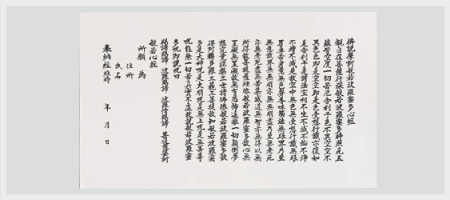 佛説摩訶般若波羅蜜多心経
観自在菩薩行深般若波羅蜜多時照見五
蘊皆空度一切苦厄舎利子色不異空空不
異色色即是空空即是色受想行識亦復如
是舎利子是諸法空相不生不滅不垢不浄
不増不減是故空中無色無受想行識無眼
耳鼻舌身意無色声香味触法無眼界乃至
無意識界無無明亦無無明尽乃至無老死
亦無老死尽無苦集滅道無智亦無得以無
所得故菩提薩埵依般若波羅蜜多故心無
罣礙無罣礙故無有恐怖遠離一切顛倒夢
想究竟涅槃三世諸佛依般若波羅蜜多故
得阿耨多羅三藐三菩提故知般若波羅蜜
多是大神呪是大明呪是無上呪是無等等
呪能除一切苦真実不虚故説般若波羅蜜
多呪即説呪曰
羯諦羯諦 波羅羯諦 波羅僧羯諦 菩提薩婆訶
般若心経
所願 為
住所
氏名
奉納 年 月 日